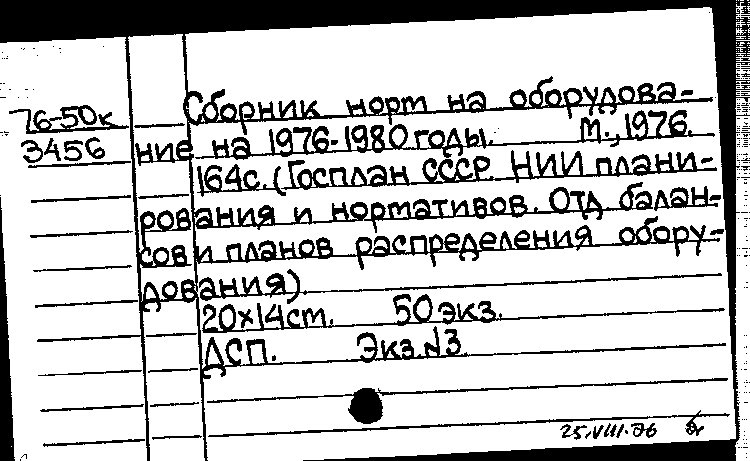 76-50к Сборник норт на оборудова-
3456 ние на 1976-1980 годы. М., 1976.
164с. (Госплан СССР. НИИ плани-
рования и нормативов. Отд балан-
сов и планов распределения обору-
дования).
20х14ст. 50 экз.
ДСП. Экз. N3.
25.VIII.76